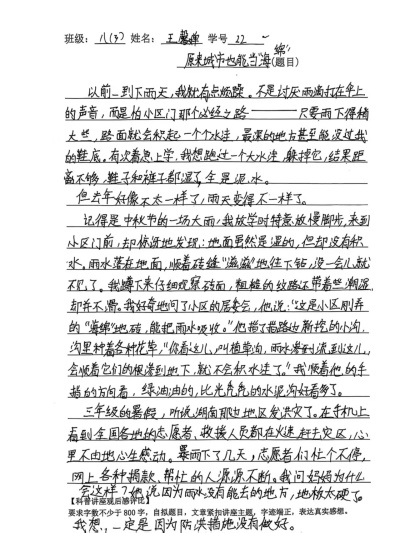 班级：八(3) 姓名：王馨婵 学号 22
原来城市也能当海绵(题目)
以前一到下雨天，我就有点烦躁。不是讨厌雨滴打在伞上
的声音，而是怕小区门那个必经之路——只要雨下得稍
大些，路面就会积起一个个水洼，最深的地方甚至能没过我
的鞋底。有次着急上学，我想跑过一个大水洼，躲掉它，结果距
离不够，鞋子和裤子都湿了，全是泥水。
但去年好像不太一样了，雨天变得不一样了。
记得是中秋节的一场大雨，我放学时特意放慢脚步，来到
小区门前，却惊讶地发现：地面虽然是湿的，但却没有积
水。雨水落在地面，顺着砖缝“滋滋”地往下钻，没一会儿就
不见了。我蹲下来仔细观察砖面，粗糙的纹路还带着些潮湿
却并不滑。我好奇地问了小区的居委会，他说：“这是小区刚弄
的“海绵”地砖，能把雨水吸收。”他指了指路边新挖的小沟，
沟里种着各种花草，“你看这儿，叫植草沟，雨水滚到流到这儿，
会顺着它们的根渗到地下，就不会积水洼了。”我顺着他的手
指的方向看，绿油油的，比光秃秃的水泥沟好看多了。
三年级的暑假，听说湖南那边地区发洪灾了。在手机上
看到全国各地的志愿者、救援人员都在火速赶去灾区，心
里不由地心生感动。暴雨下了几天，志愿者们忙个不停，
网上各种捐款、帮忙的人源源不断。我问妈妈为什么
会这样？他说因为雨水没有能去的地方，地板太硬了。
【科普讲座观后感评比】
要求字数不少于 800 字，自拟题目，文章紧扣讲座主题，字迹端正，表达真实感想。
我想，一定是因为防洪措施没有做好。